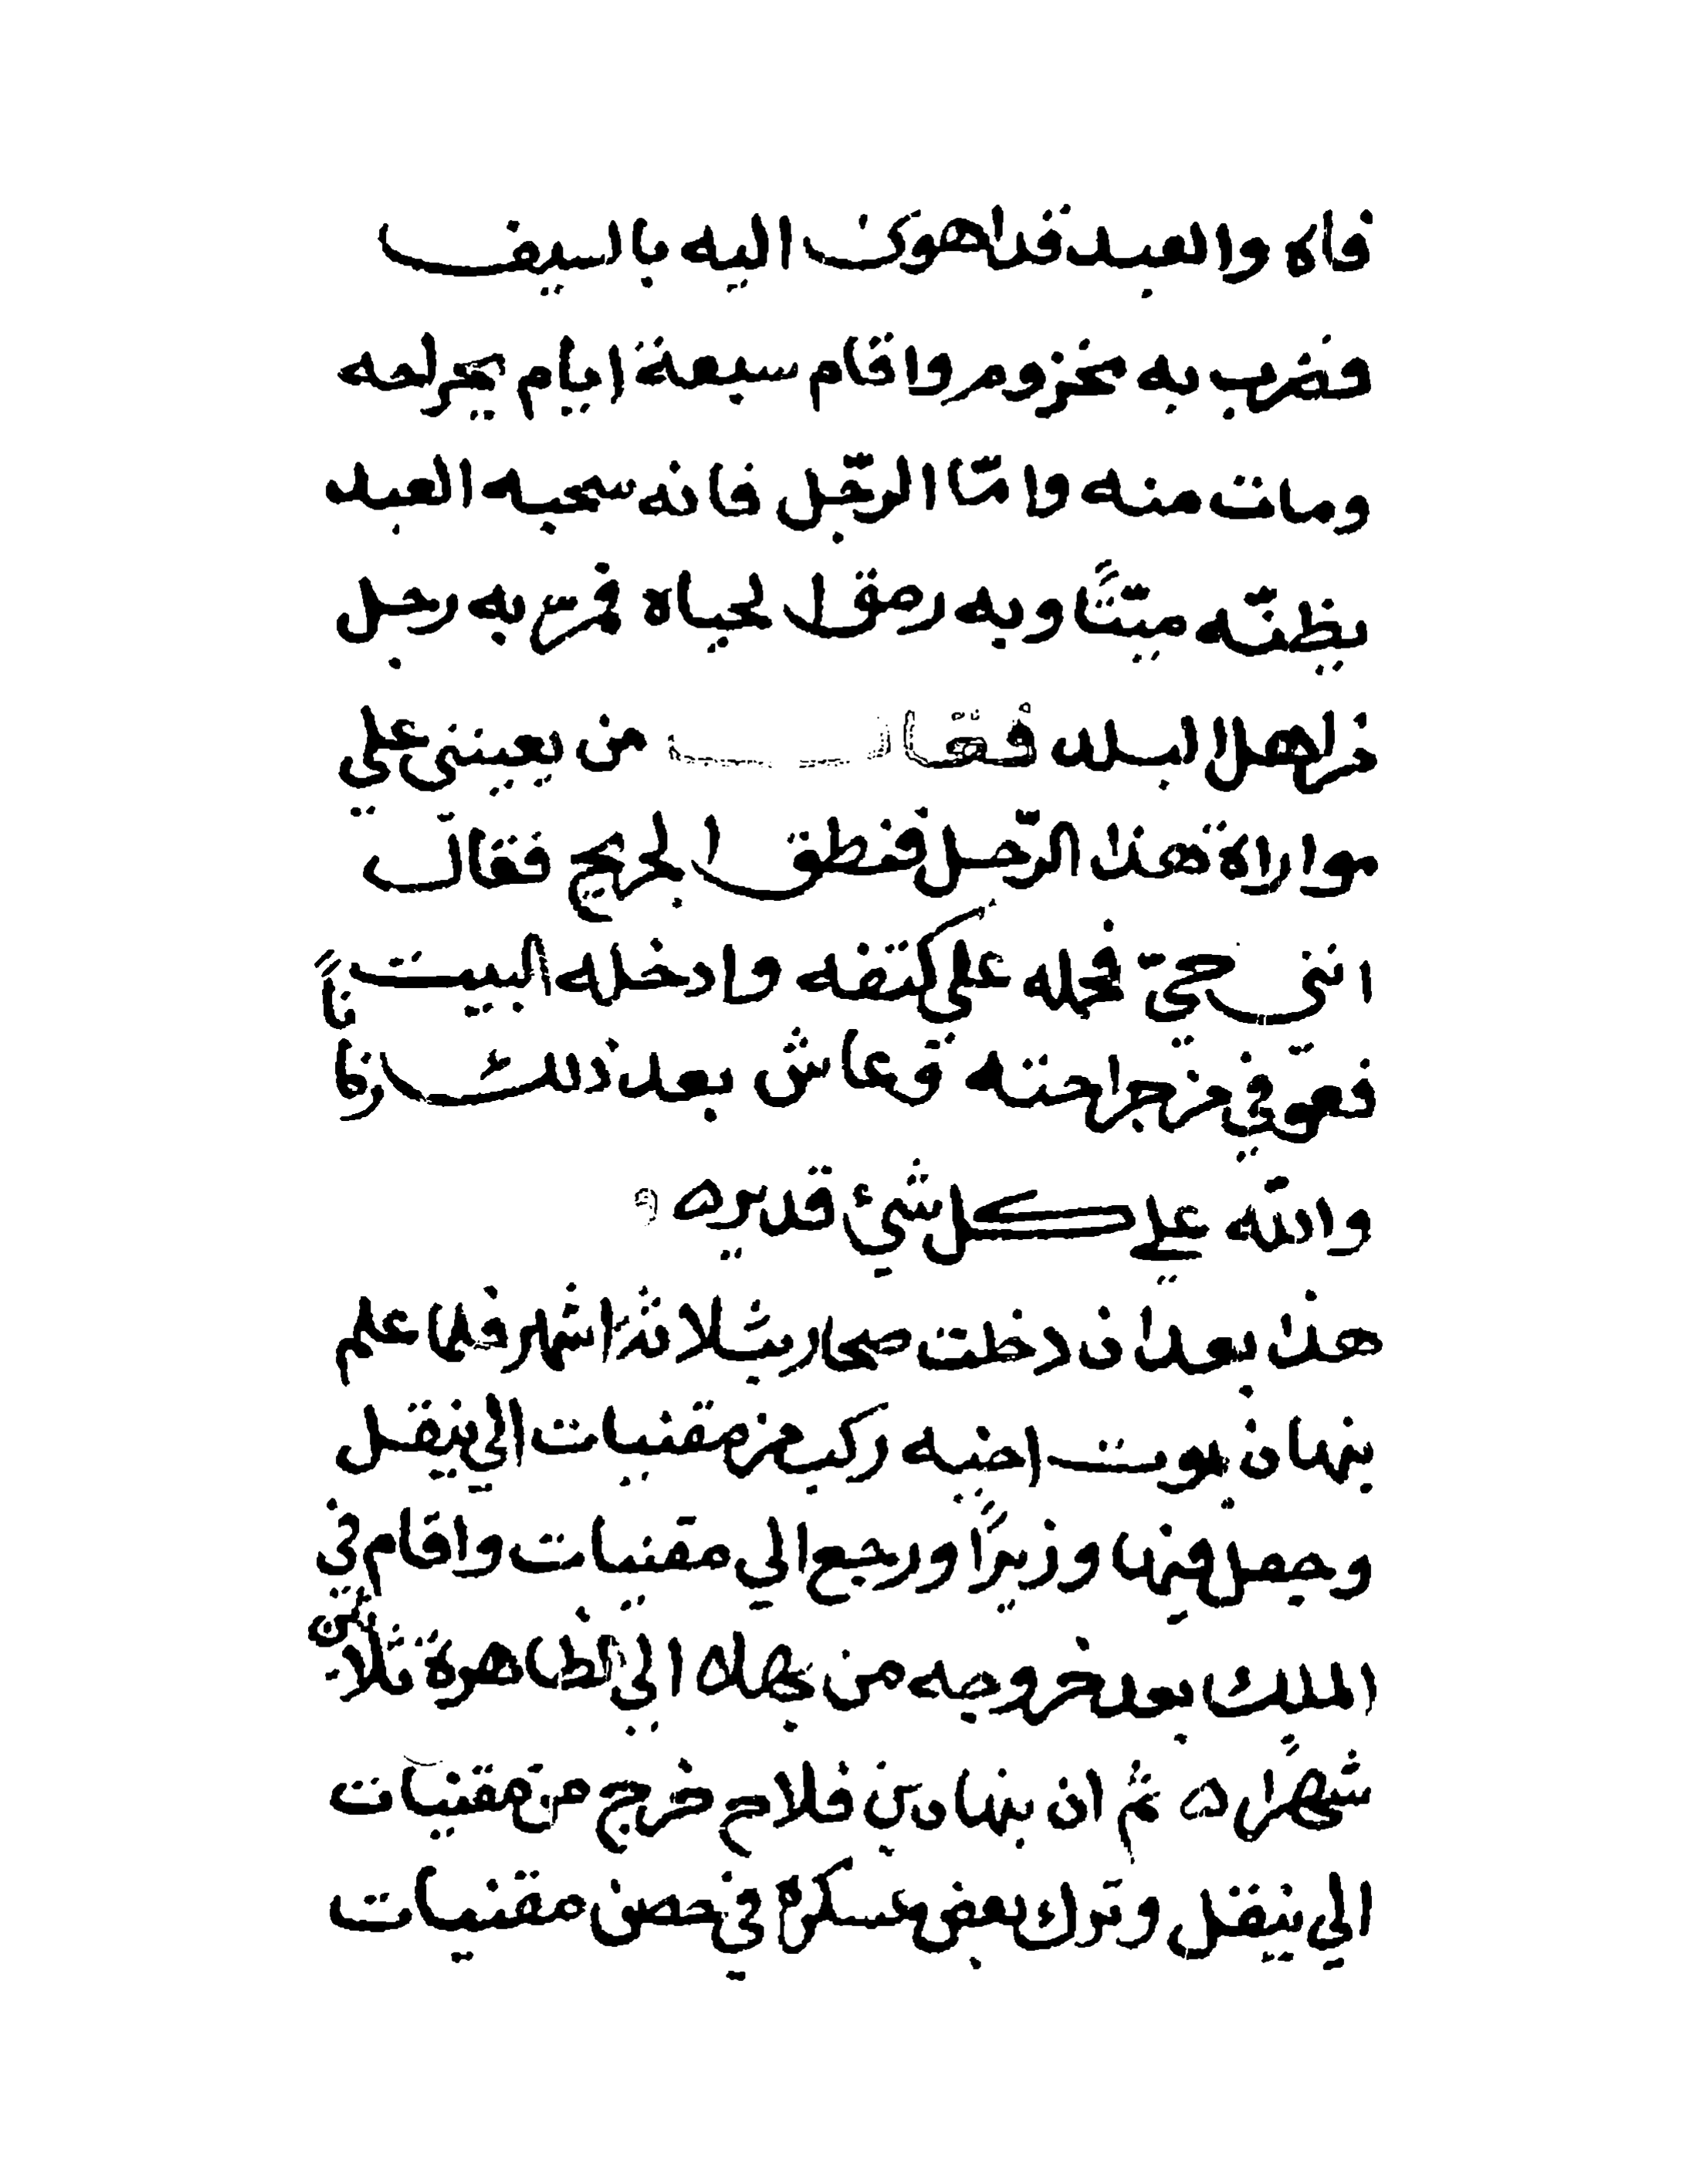 فاه والعبد قد اهوى اليه بالسيف
فضرب به مخزوم واقام سبعة ايام يجراحه
ومات منه وامّا الرّجل فانه سحبه العبد
يظنّه ميتًا وبه رمق الحياه فمرّ به رجل
من اهل البلد فقال من يعينني علي
مواراة هذا الرّجل فنطق الجريح فقال
انني حيّ فحمله علي كتفه وادخله البيت
فعوفي من جراحته وعاش بعد ذلك زمانًا
والله علي كل شئ قدير ه
هذا بعد ان دخلت صحار بثلاثة اشهر فلما علم
بنهان بموت اخيه ركب من مقنيات الي ينقل
وجعل فيها وزيرًا ورجع الي مقنيات واقام في
الملك بعد خروجه من بهلا الي الظاهرة ثلاثين
شهرًا ه ثم ان بنهان بن فلاح خرج من مقنيات
الي ينقل وترك بعض عسكره في حصن مقنيات